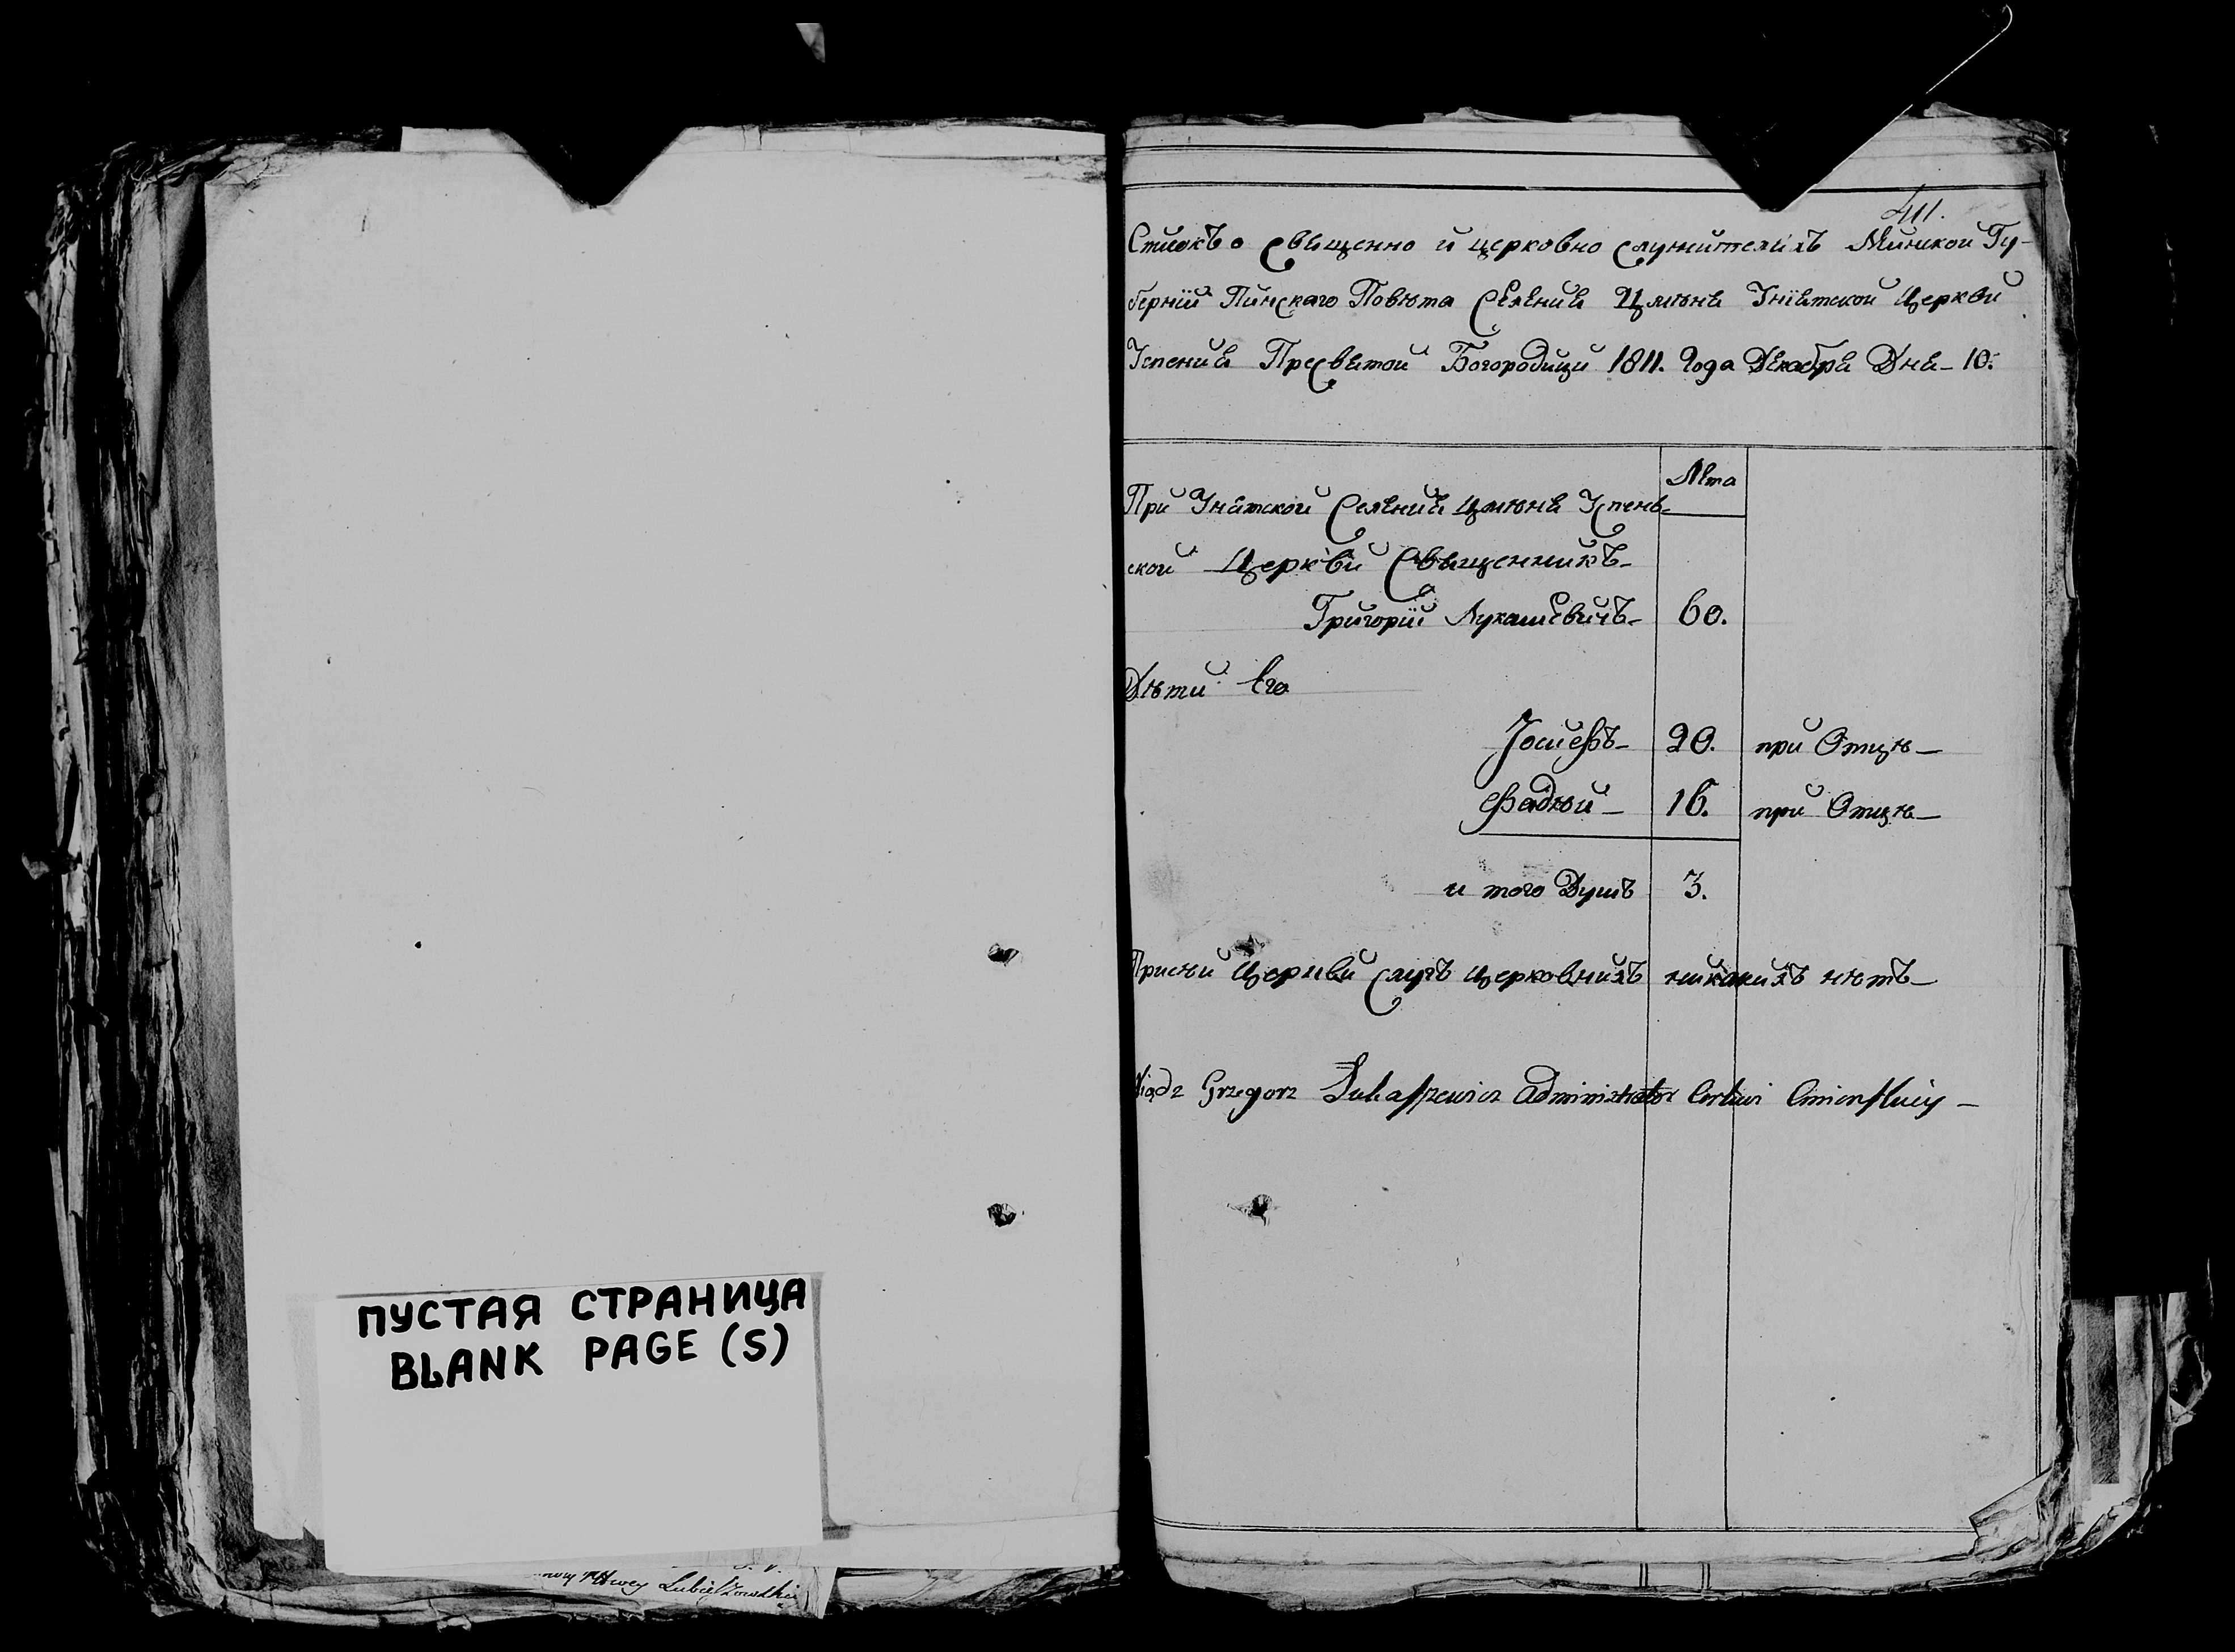 ПУСТАЯ СТРАНИЦА
BLANK PAGE (S)
411.
Списокъ о Священно и церковно служителяхъ Минской Гу-
берніи Пинскаго Повѣта Селѣния Цмѣня Унїятской Церкви
Успения Пресвятой Богородици 1811. Года Декабря Дня - 10.
Лѣта
При Униятской Селѣния Цмѣня Успень-
ской Церкви Священникъ -
Григорїй Лукашевичъ - 60.
Дѣти Его
Іосифъ - 20. при Отцѣ -
Фадѣй - 16. при Отцѣ -
и того Душъ 3.
При сѣй Церкви слугъ церковнихъ никакихъ нѣтъ -
Xiądz Grzegorz Łukaszewicz Administrator Cerkwi